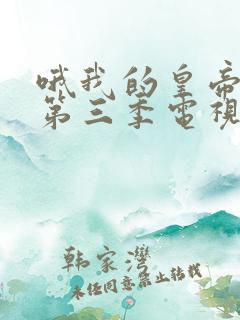 哦我的皇帝
第三季電視
韩家湾
未经同意禁止转载